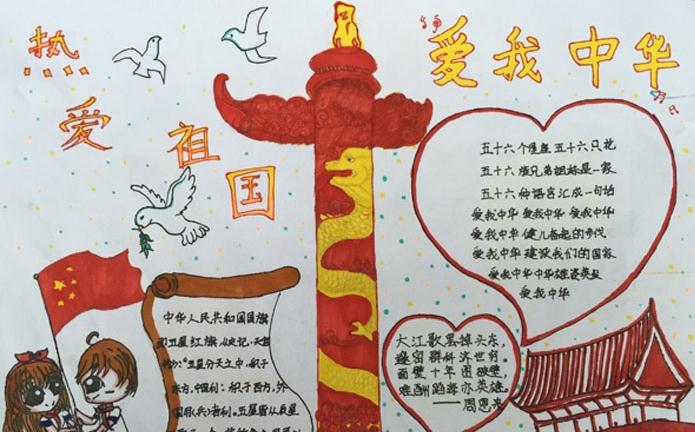 热爱祖国
爱我中华
五十六个星座 五十六只花
五十六族兄弟姐妹是一家
五十六种语言汇成一句话
爱我中华 爱我中华 爱我中华
爱我中华 健儿奋起的步伐
爱我中华 建设我们的国家
爱我中华中华雄姿英发
爱我中华
中华人民共和国国旗
五星红旗,史记·天官
:"五星分天之中,积于
东方,中国利;积于西方,外
国用(兵)者利。五星皆从辰星
大江歌罢掉头东,
邃密群科济世穷。
面壁十年图破壁,
难酬蹈海亦英雄。
——周恩来